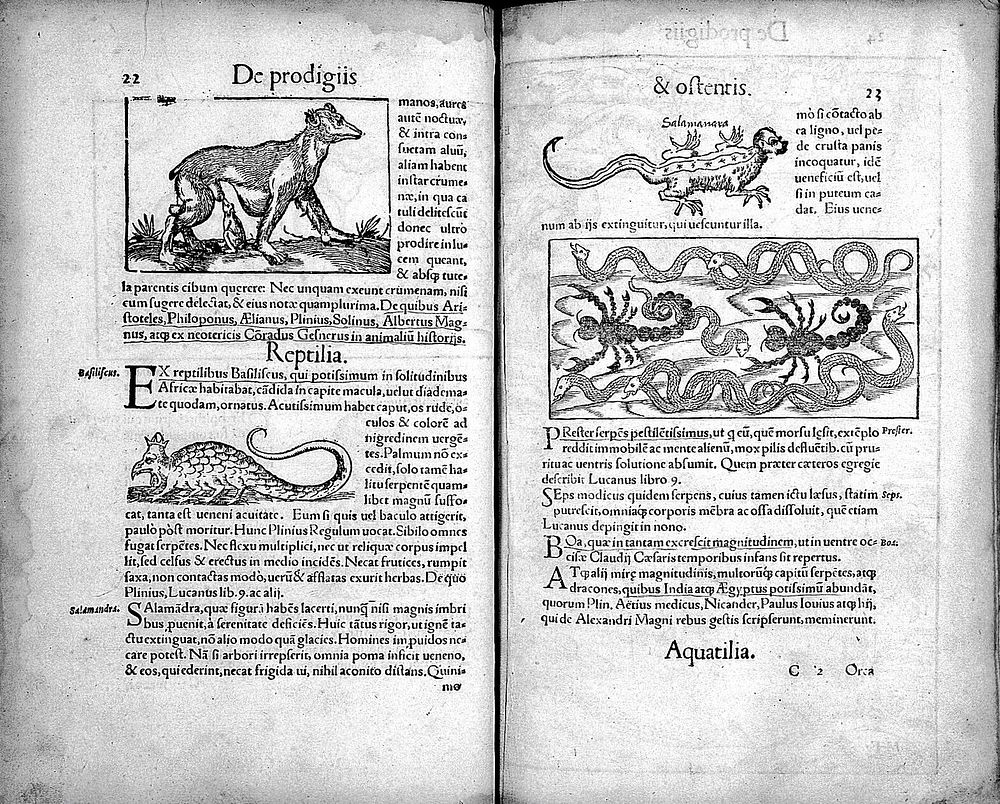 22
De prodigiis
manos, aures
autē noctuæ,
& intra con⸗
suetam aluū,
aliam habent
instar crume⸗
næ, in qua ca
tuli delitescūt
donec ultro
prodire in lu⸗
cem queant,
& absq; tute⸗
la parentis cibum querere: Nec unquam exeunt crumenam, nisi
cum sugere delectat, & eius notæ quamplurima. De quibus Ari⸗
stoteles, Philoponus, Ælianus, Plinius, Solinus, Albertus Mag⸗
nus, atq; ex neotericis Cōradus Gesnerus in animaliū historijs.
Reptilia.
Basiliscus.
EX reptilibus Basiliscus, qui potissimum in solitudinibus
Africæ habitabat, cādida in capite macula, uelut diadema⸗
te quodam, ornatus. Acutissimum habet caput, os rude, o⸗
culos & colorē ad
nigredinem uergē⸗
tes. Palmum nō ex⸗
cedit, solo tamē ha⸗
litu serpentē quam⸗
libet magnū suffo⸗
cat, tanta est ueneni acuitate. Eum si quis uel baculo attigerit,
paulò pòst moritur. Hunc Plinius Regulum uocat. Sibilo omnes
fugat serpētes. Nec flexu multiplici, nec ut reliquæ corpus impel
lit, sed celsus & erectus in medio incidēs. Necat frutices, rumpit
saxa, non contactas modò, uerū & afflatas exurit herbas. De quo
Plinius, Lucanus lib. 9. ac alij.
Salamandra.
SAlamādra, quæ figurā habēs lacerti, nunq̄ nisi magnis imbri
bus ꝓuenit, à serenitate deficiēs. Huic tātus rigor, ut ignē ta⸗
ctu extinguat, nō alio modo quā glacies. Homines imꝓuidos ne⸗
care potest. Nā si arbori irrepserit, omnia poma inficit ueneno,
& eos, qui ederint, necat frigida ui, nihil aconito distans. Quini⸗
mo
& ostentis.
23
Salamanara
mò si cōtacto ab
ea ligno, uel pe⸗
de crusta panis
incoquatur, idē
ueneficiū est, uel
si in puteum ca⸗
dat. Eius uene⸗
num ab ijs extinguitur, qui uescuntur illa.
PRester serpēs pestilētissimus, ut q eū, quē morsu læsit, extēplo
Prester.
reddit immobilē ac mente alienū, mox pilis defluētib. cū pru⸗
ritu ac uentris solutione absumit. Quem præter cæteros egregie
describit Lucanus libro 9.
SEps modicus quidem serpens, cuius tamen ictu læsus, statim
Seps.
putrescit, omniaq; corporis mēbra ac ossa dissoluit, quē etiam
Lucanus depingit in nono.
BOa, quæ in tantam excrescit magnitudinem, ut in uentre oc⸗
Boa.
cisæ Claudij Cæsaris temporibus infans sit repertus.
ATq; alij miræ magnitudinis, multorūq; capitū serpētes, atq;
dracones, quibus India atq; Ægyptus potissimū abundāt,
quorum Plin. Aëtius medicus, Nicander, Paulus Iouius atq; hij,
qui de Alexandri Magni rebus gestis scripserunt, meminerunt.
Aquatilia.
C 2 Orca